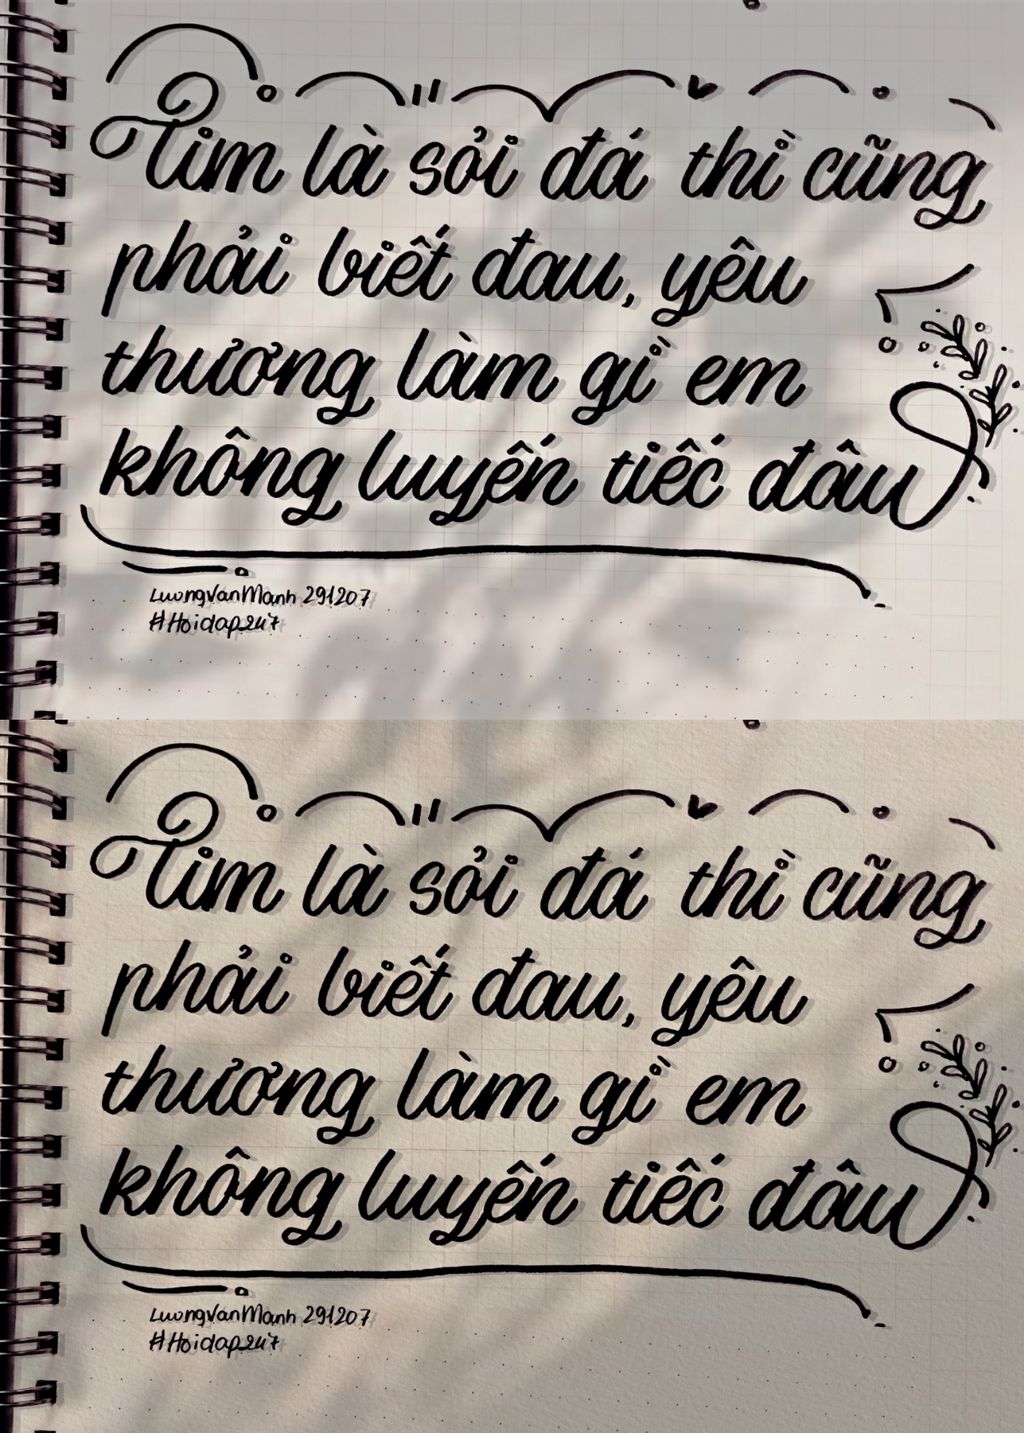 Tim là sỏi đá thì cũng
phải biết đau, yêu
thương làm gì em
không luyến tiếc đâu
LuongVanManh 291207
#Hoidap247
Tim là sỏi đá thì cũng
phải biết đau, yêu
thương làm gì em
không luyến tiếc đâu
LuongVanManh 291207
#Hoidap247